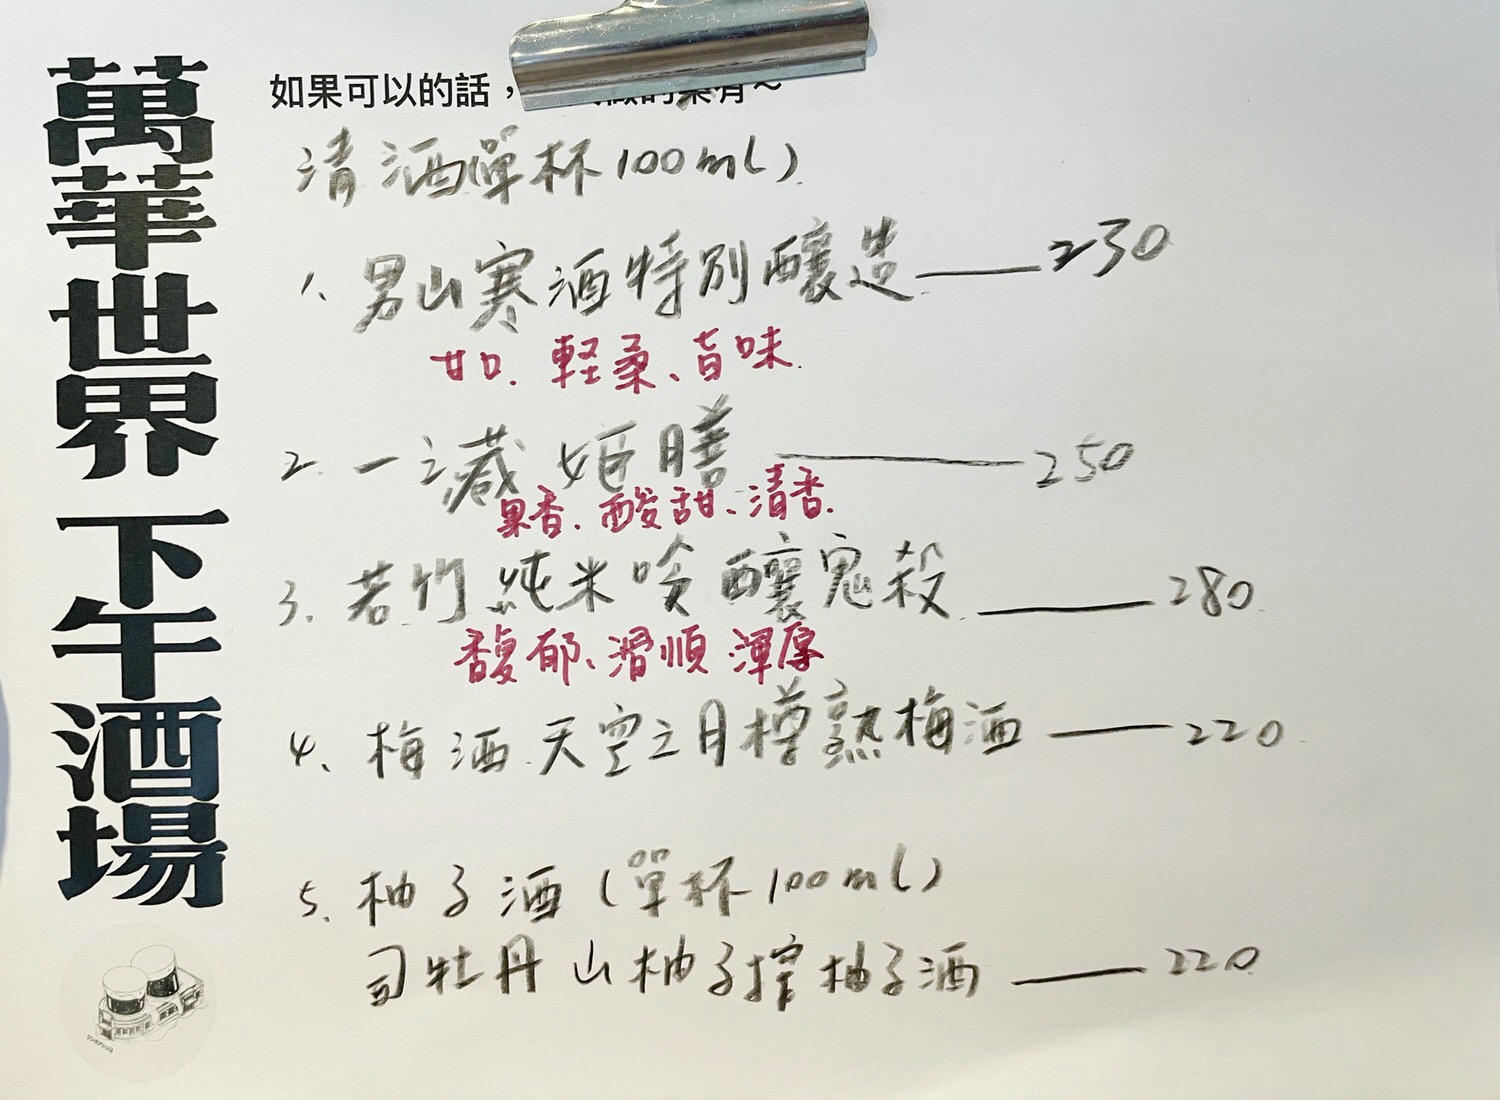 萬華世界 下午酒場
如果可以的話，
清酒單杯100ml)
1、男山寒酒特別釀造——230
甘口、軽柔、旨味
2. 一滴 姫膳——250
果香、酸甜、清香
3. 若竹 純米吟釀鬼殺——280
馥郁、滑順 渾厚
4、梅酒 天空之月樽熟梅酒——220
5、柚子酒(單杯100ml)
司牡丹 山柚子搾柚子酒——220